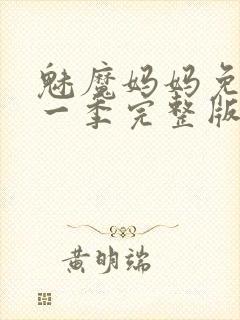 魅魔妈妈免
一季完整版
黄明端